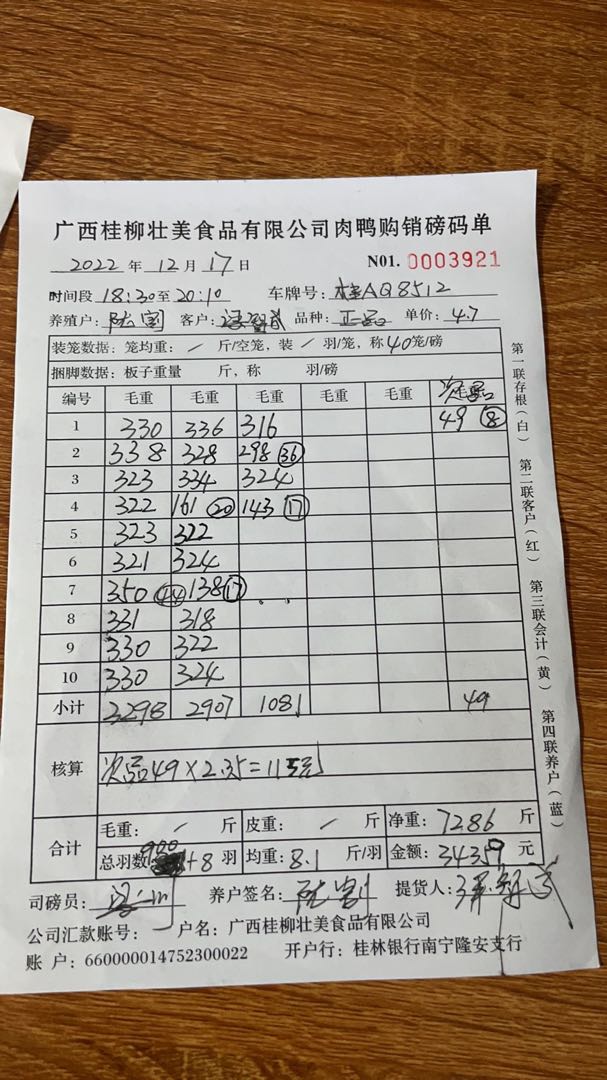 广西桂柳壮美食品有限公司肉鸭购销磅码单
2022 年 12 月 17 日 N01. 0003921
时间段 18:30至20:10 车牌号: 桂AQ8512
养殖户: 客户: 品种: 正品 单价: 4.7
装笼数据: 笼均重: / 斤/空笼, 装 / 羽/笼, 称 40 笼/磅
捆脚数据: 板子重量 斤, 称 羽/磅
编号 毛重 毛重 毛重 毛重 毛重 次品
1 330 336 316 49 ⑧
2 338 328 298 ㊱
3 323 334 324
4 322 161 ⑳ 143 ⑰
5 323 322
6 321 324
7 350 ㊹ 138 ⑰
8 331 318
9 330 322
10 330 324
小计 3298 2907 1081 49
核算 次品49×2.35=115元
合计 毛重: / 斤 皮重: / 斤 净重: 7286 斤
总羽数: 900+8 羽 均重: 8.1 斤/羽 金额: 34359 元
司磅员: 养户签名: 提货人:
公司汇款账号: 户名: 广西桂柳壮美食品有限公司
账 户: 660000014752300022 开户行: 桂林银行南宁隆安支行
第一联存根(白) 第二联客户(红) 第三联会计(黄) 第四联养户(蓝)